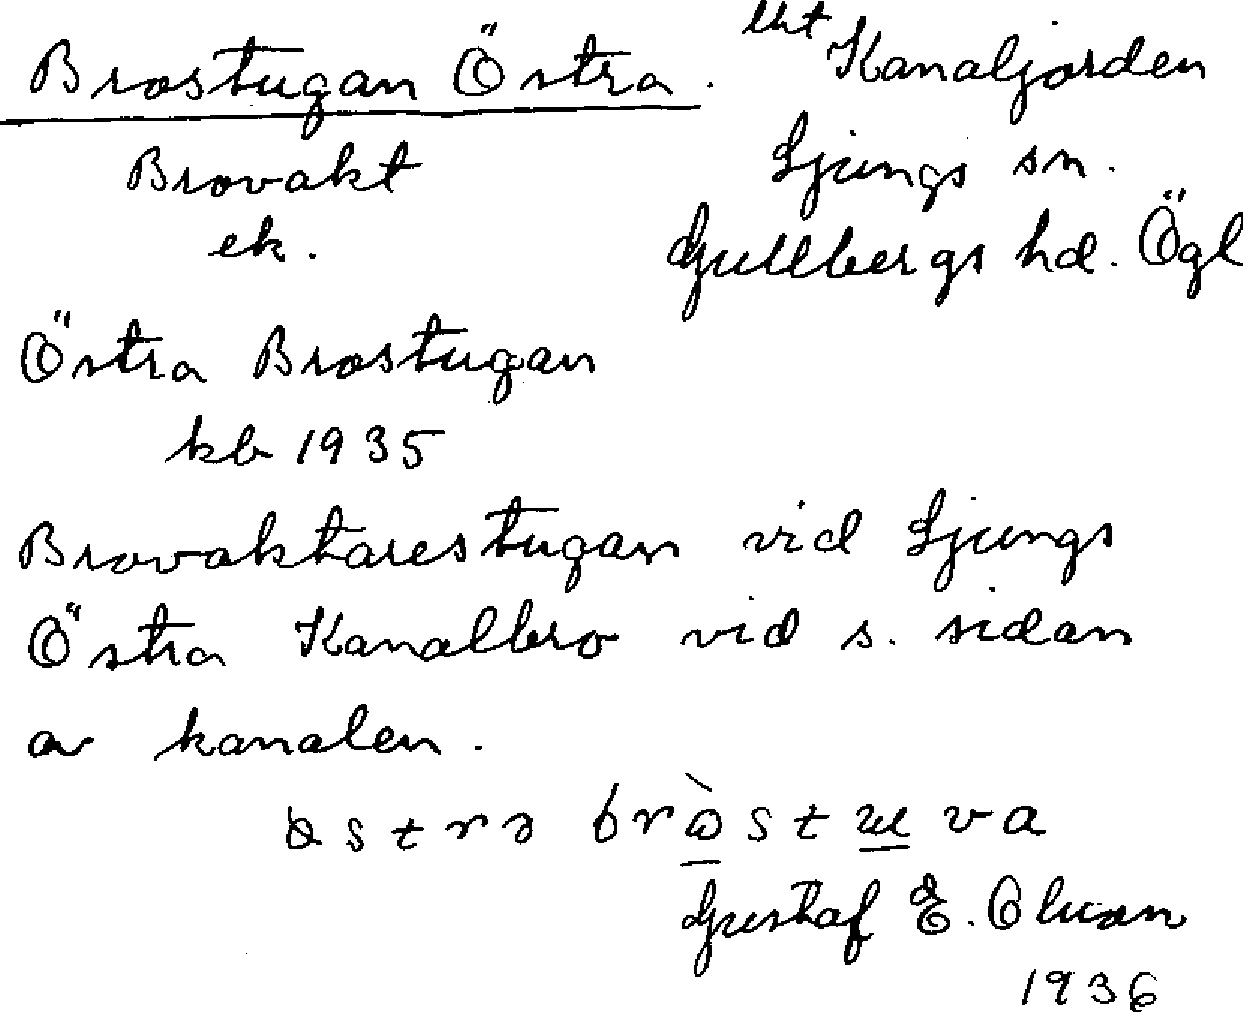 Brostugan Östra. lht Kanaljorden
Brovakt Ljungs sn.
ek. Gullbergs hd. Ögl
Östra Brostugan
kb 1935
Brovaktarestugan vid Ljungs
Östra Kanalbro vid s. sidan
av kanalen.
Gustaf E. Olsson
1936